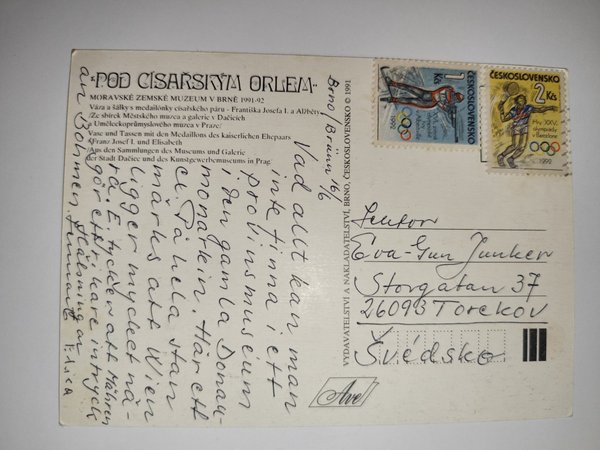 "POD CÍSAŘSKÝM ORLEM"
MORAVSKÉ ZEMSKÉ MUZEUM V BRNĚ 1991-92
Váza a šálky s medailónky císařského páru - Františka Josefa I. a Alžběty
/Ze sbírek Městského muzea a galerie v Dačicích
a Uměleckoprůmyslového muzea v Praze/
Vase und Tassen mit den Medaillons des kaiserlichen Ehepaars
Franz Josef I. und Elisabeth
/Aus den Sammlungen des Museums und Galerie
der Stadt Dačice und des Kunstgewerbemuseums in Prag/
Brno/Brünn 16/6
Vad allt kan man
inte finna i ett
provinsmuseum
i den gamla Donau-
monarkin. Här ett
På hela stan
märks att Wien
ligger mycket nä-
ra. E. tycker att Mähren
gör ett rikare intryck
än Böhmen.
Hälsningar
VYDAVATELSTVÍ A NAKLADATELSTVÍ, BRNO, ČESKOSLOVENSKO © 1991
Ave
ČESKOSLOVENSKO
1 Kčs
1992
ČESKOSLOVENSKO
2 Kčs
Hry XXV.
olympiády
v Barceloně
1992
Eva-Gun Junker
Storgatan 37
26093 Torekov
Švédsko